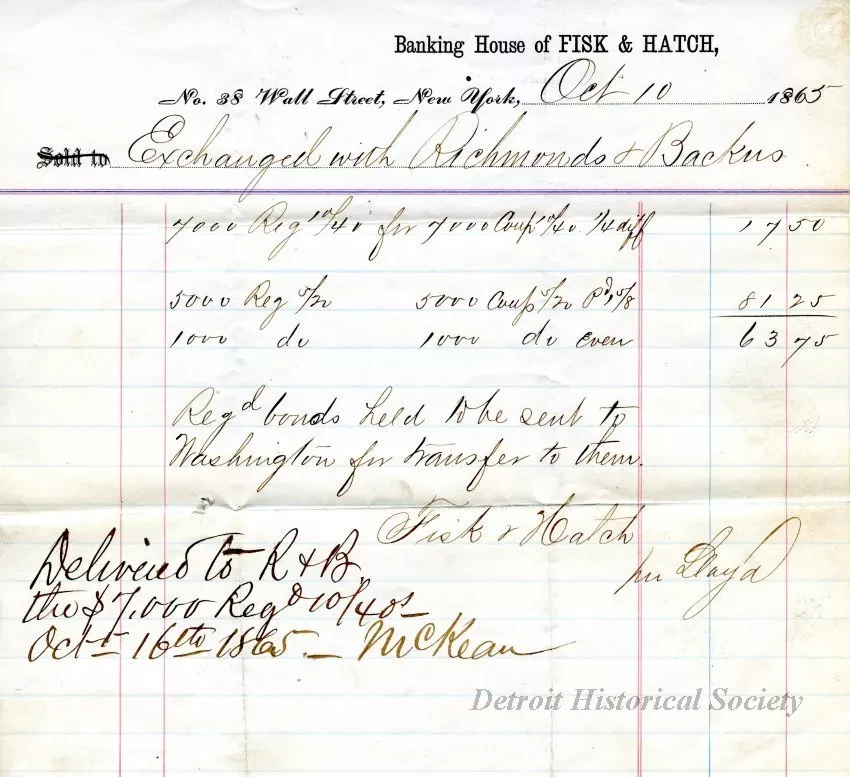 Banking House of FISK & HATCH,
No. 38 Wall Street, New York, Oct 10 1865
Sold to Exchanged with Richmonds & Backus
7000 Reg 10/40 for 7000 Coup 10/40 1/4 diff 17 50
5000 Reg 5/20 5000 Coup 5/20 Pd, 5/8 81 25
1000 do 1000 do even 63 75
Regd bonds held to be sent to
Washington for transfer to them.
Fisk & Hatch
per Lloyd
Delivered to R & B.
the $7,000 Regd 10/40s
Oct 16th 1865. McKean
Detroit Historical Society